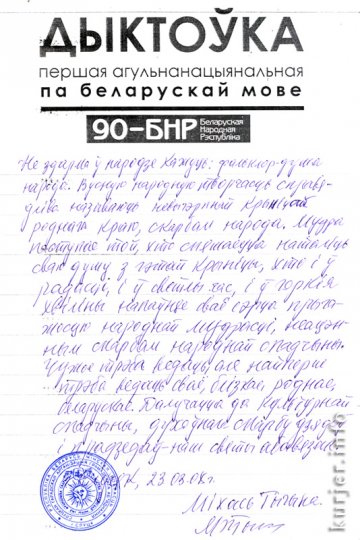 ДЫКТОЎКА
першая агульнанацыянальная
па беларускай мове
90-БНР Беларуская
Народная
Рэспубліка
Не ўдарма ў народзе кажуць: фальклор-душа
народа. Вусную народную творчасць справяд-
ліва называюць невычэрпнай крыніцай
роднага краю, скарбам народа. Мудра
поступіць той, хто спяшаецца наталіць
сваю душу з гэтай крыніцы, хто і ў
радасці, і ў светлы час, і ў горкія
хвіліны напаўняе сваё сэрца прыга-
жосцю народнай мудрасці, неацэн-
ным скарбам народнай спадчыны.
Чужое трэба ведаць, але найперш
трэба ведаць сваё, блізкае, роднае,
беларускае. Далучацца да культурнай
спадчыны, духоўнага скарбу дзядоў
і прадзедаў - наш святы абавязак.
23.03.08г.
Міхась
kurjer.info